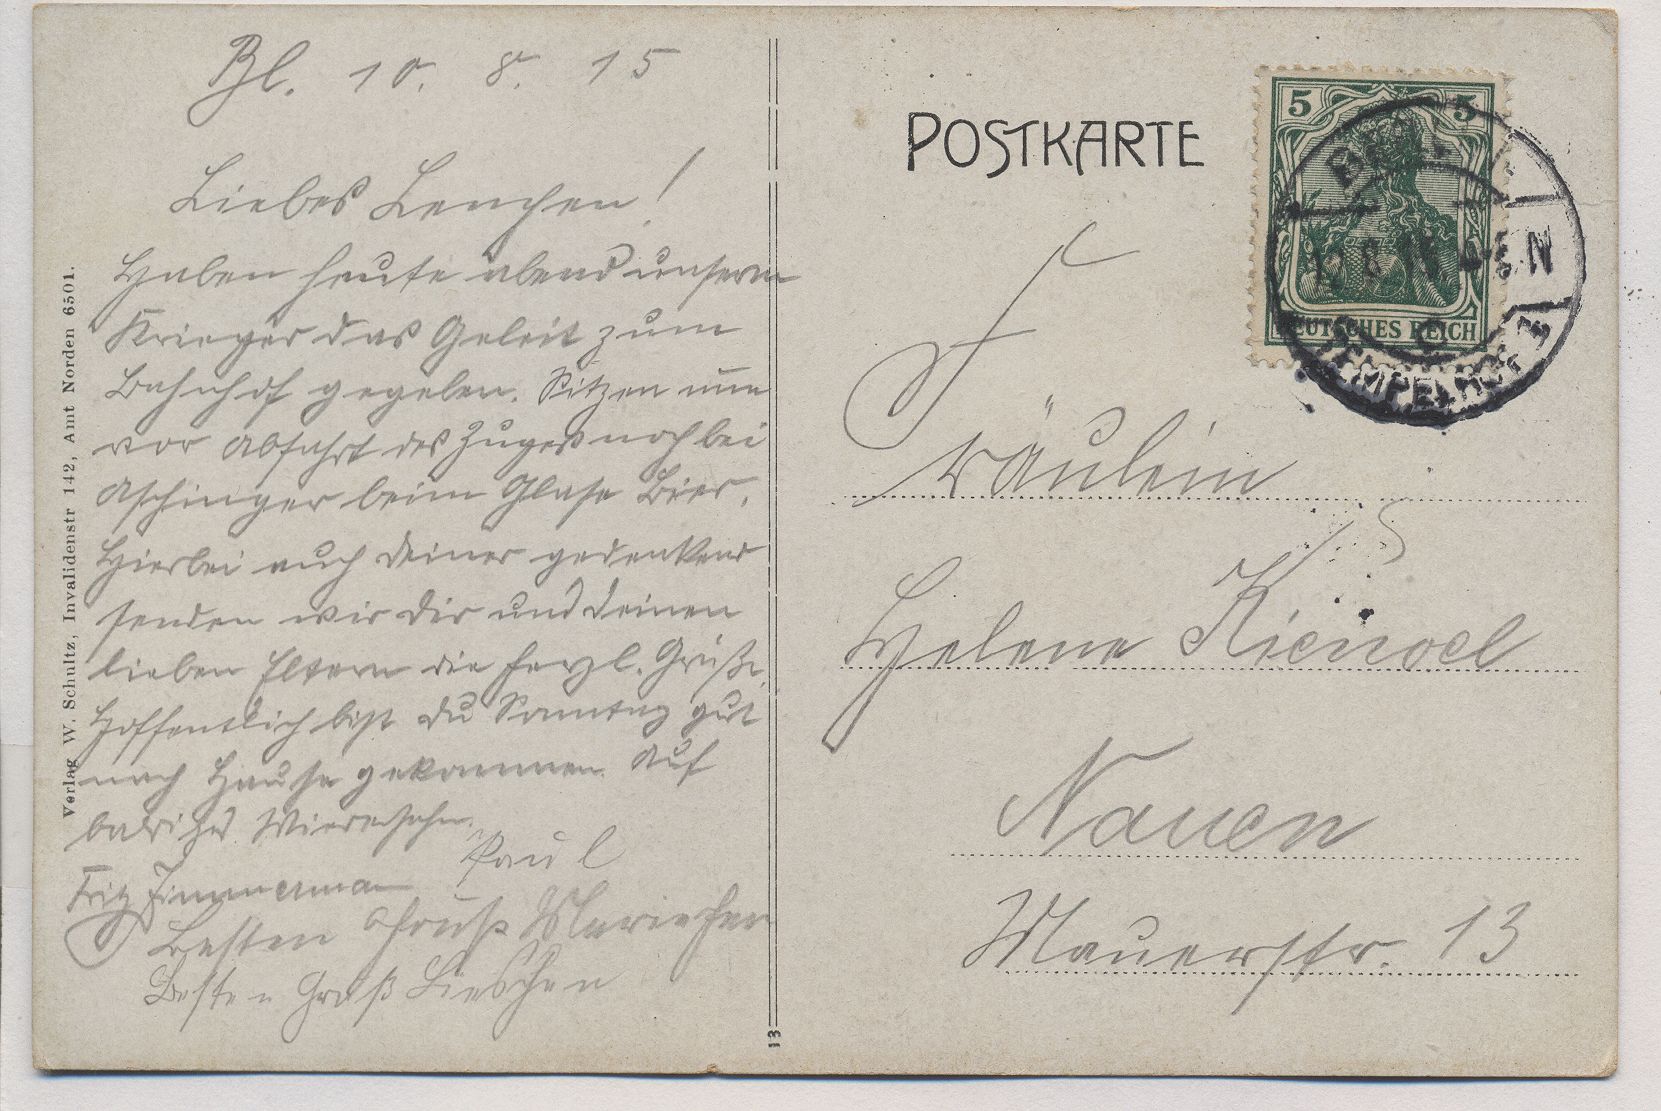 Bl. 10. 8. 15
Liebes Lenchen!
Haben heute abend unserm
Krieger das Geleit zum
Bahnhof gegeben. Sitzen nun
vor Abfahrt des Zuges noch bei
Aschinger beim Glase Bier.
Hierbei auch Deiner gedenkend
senden wir Dir und Deinen
lieben Eltern die herzl. Grüße.
Hoffentlich bist Du Sonntag gut
nach Hause gekommen. Auf
baldiges Wiersehn.
Paul
Fritz Zimmermann
Besten Gruß Mariechen
Besten Gruß Lieschen
Verlag W. Schultz, Invalidenstr 142, Amt Norden 6501.
13
POSTKARTE
5 5
DEUTSCHES REICH
BERLIN
TEMPELHOF
Fräulein
Helene Kienoel
Nauen
Mauerstr. 13